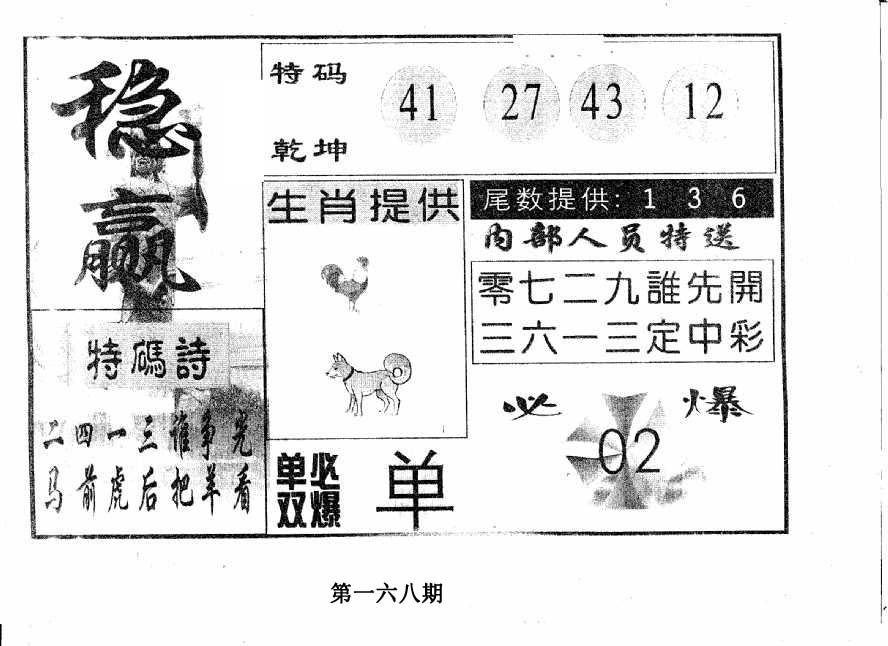 稳赢
特码
乾坤
41 27 43 12
生肖提供
尾数提供: 1 3 6
内部人员特送
零七二九誰先開
三六一三定中彩
特碼詩
二四一三谁争先
马前虎后把羊看
必爆
02
单双
必爆
单
第一六八期